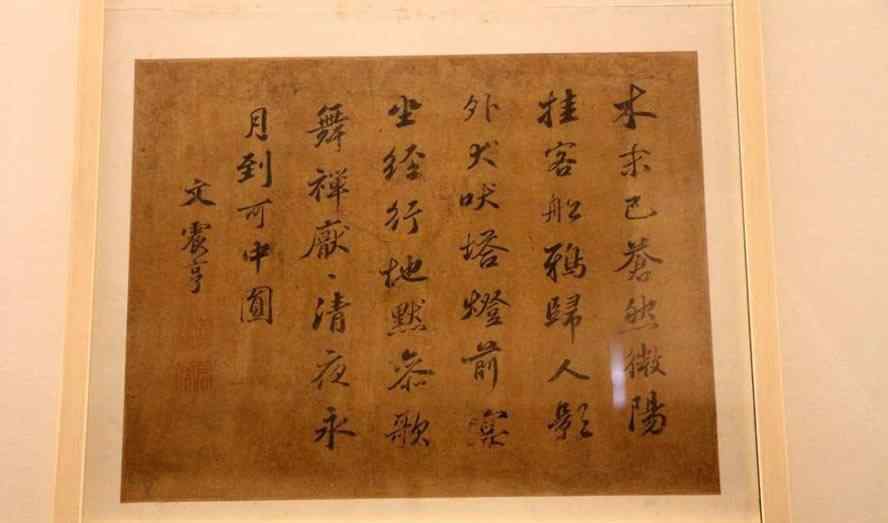 木末已蒼然微陽
挂客船鴉歸人影
外犬吠塔燈前冥
坐經行地默參歌
舞禪厭、清夜永
月到可中圓
文震亨